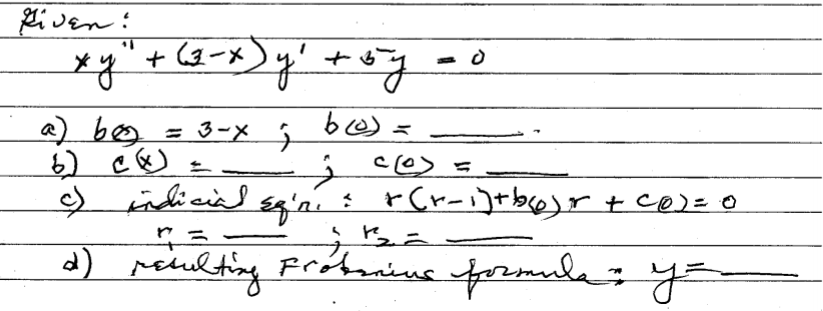 Given:
xy'' + (3-x)y' + 5y = 0
a) b(x) = 3-x ; b(0) = ______.
b) c(x) = ______ ; c(0) = ______
c) indicial eq'n. : r(r-1)+b(0)r + c(0)=0
r₁ = ______ ; r₂ = ______
d) resulting Frobenius formula: y=______